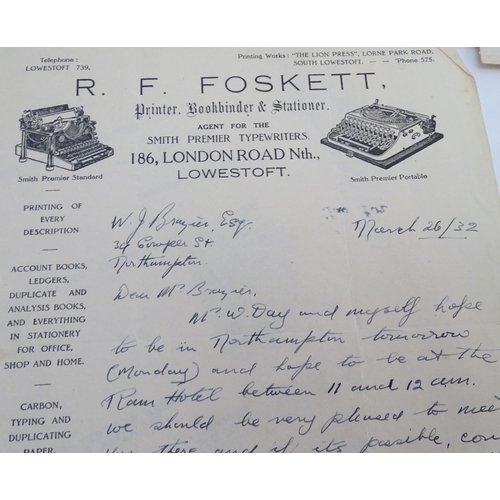 Telephone :
LOWESTOFT 739.
Printing Works : "THE LION PRESS", LORNE PARK ROAD,
SOUTH LOWESTOFT. — — 'Phone 575.
R. F. FOSKETT,
Printer, Bookbinder & Stationer.
AGENT FOR THE
SMITH PREMIER TYPEWRITERS.
186, LONDON ROAD Nth.,
LOWESTOFT.
Smith Premier Standard
Smith Premier Portable
PRINTING OF
EVERY
DESCRIPTION
ACCOUNT BOOKS,
LEDGERS,
DUPLICATE AND
ANALYSIS BOOKS,
AND EVERYTHING
IN STATIONERY
FOR OFFICE,
SHOP AND HOME.
CARBON,
TYPING AND
DUPLICATING
PAPER.
March 26/32
W. J. Brazier, Esq
Cowper St
Northampton.
Dear Mr Brazier,
Mr W. Day and myself hope
to be in Northampton tomorrow
(Monday) and hope to be at the
Ram Hotel between 11 and 12 am.
we should be very pleased to meet
there and if its possible,